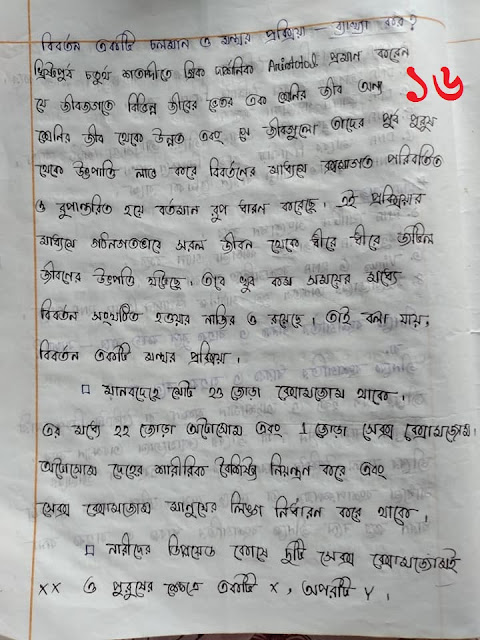 বিবর্তন একটি চলমান ও মন্থর প্রক্রিয়া – ব্যাখ্যা কর?
খ্রিষ্টপূর্ব চতুর্থ শতাব্দীতে গ্রিক দার্শনিক Aristotol প্রমান করেন
১৬
যে জীবজগতে বিভিন্ন জীবের ভেতর এক শ্রেনির জীব অন্য
শ্রেনির জীব থেকে উন্নত এবং জীবগুলো তাদের পূর্ব পুরুষ
থেকে উৎপত্তি লাভ করে বিবর্তনের মাধ্যমে ক্রমাগত পরিবর্তিত
ও রুপান্তরিত হয়ে বর্তমান রুপ ধারন করেছে। এই প্রক্রিয়ার
মাধ্যমে গঠনগতভাবে সরল জীবন থেকে ধীরে ধীরে জটিল
জীবনের উৎপত্তি ঘটেছে। তবে খুব কম সময়ের মধ্যে
বিবর্তন সংঘটিত হওয়ার নাজির ও রয়েছে। তাই বলা যায়,
বিবর্তন একটি মন্থর প্রক্রিয়া।
□ মানবদেহে মোট ২৩ জোড়া ক্রোমোজোম থাকে।
এর মধ্যে ২২ জোড়া অটোসোম এবং 1 জোড়া সেক্স ক্রোমোজোম।
অটোসোম দেহের শারীরিক বৈশিষ্ট্য নিয়ন্ত্রন করে এবং
সেক্স ক্রোমোজোম মানুষের লিঙ্গ নির্ধারন করে থাকে।
□ নারীদের ডিপ্লয়েড কোষে দুটি সেক্স ক্রোমোজোমই
XX ও পুরুষের ক্ষেত্রে একটি X, অপরটি Y।